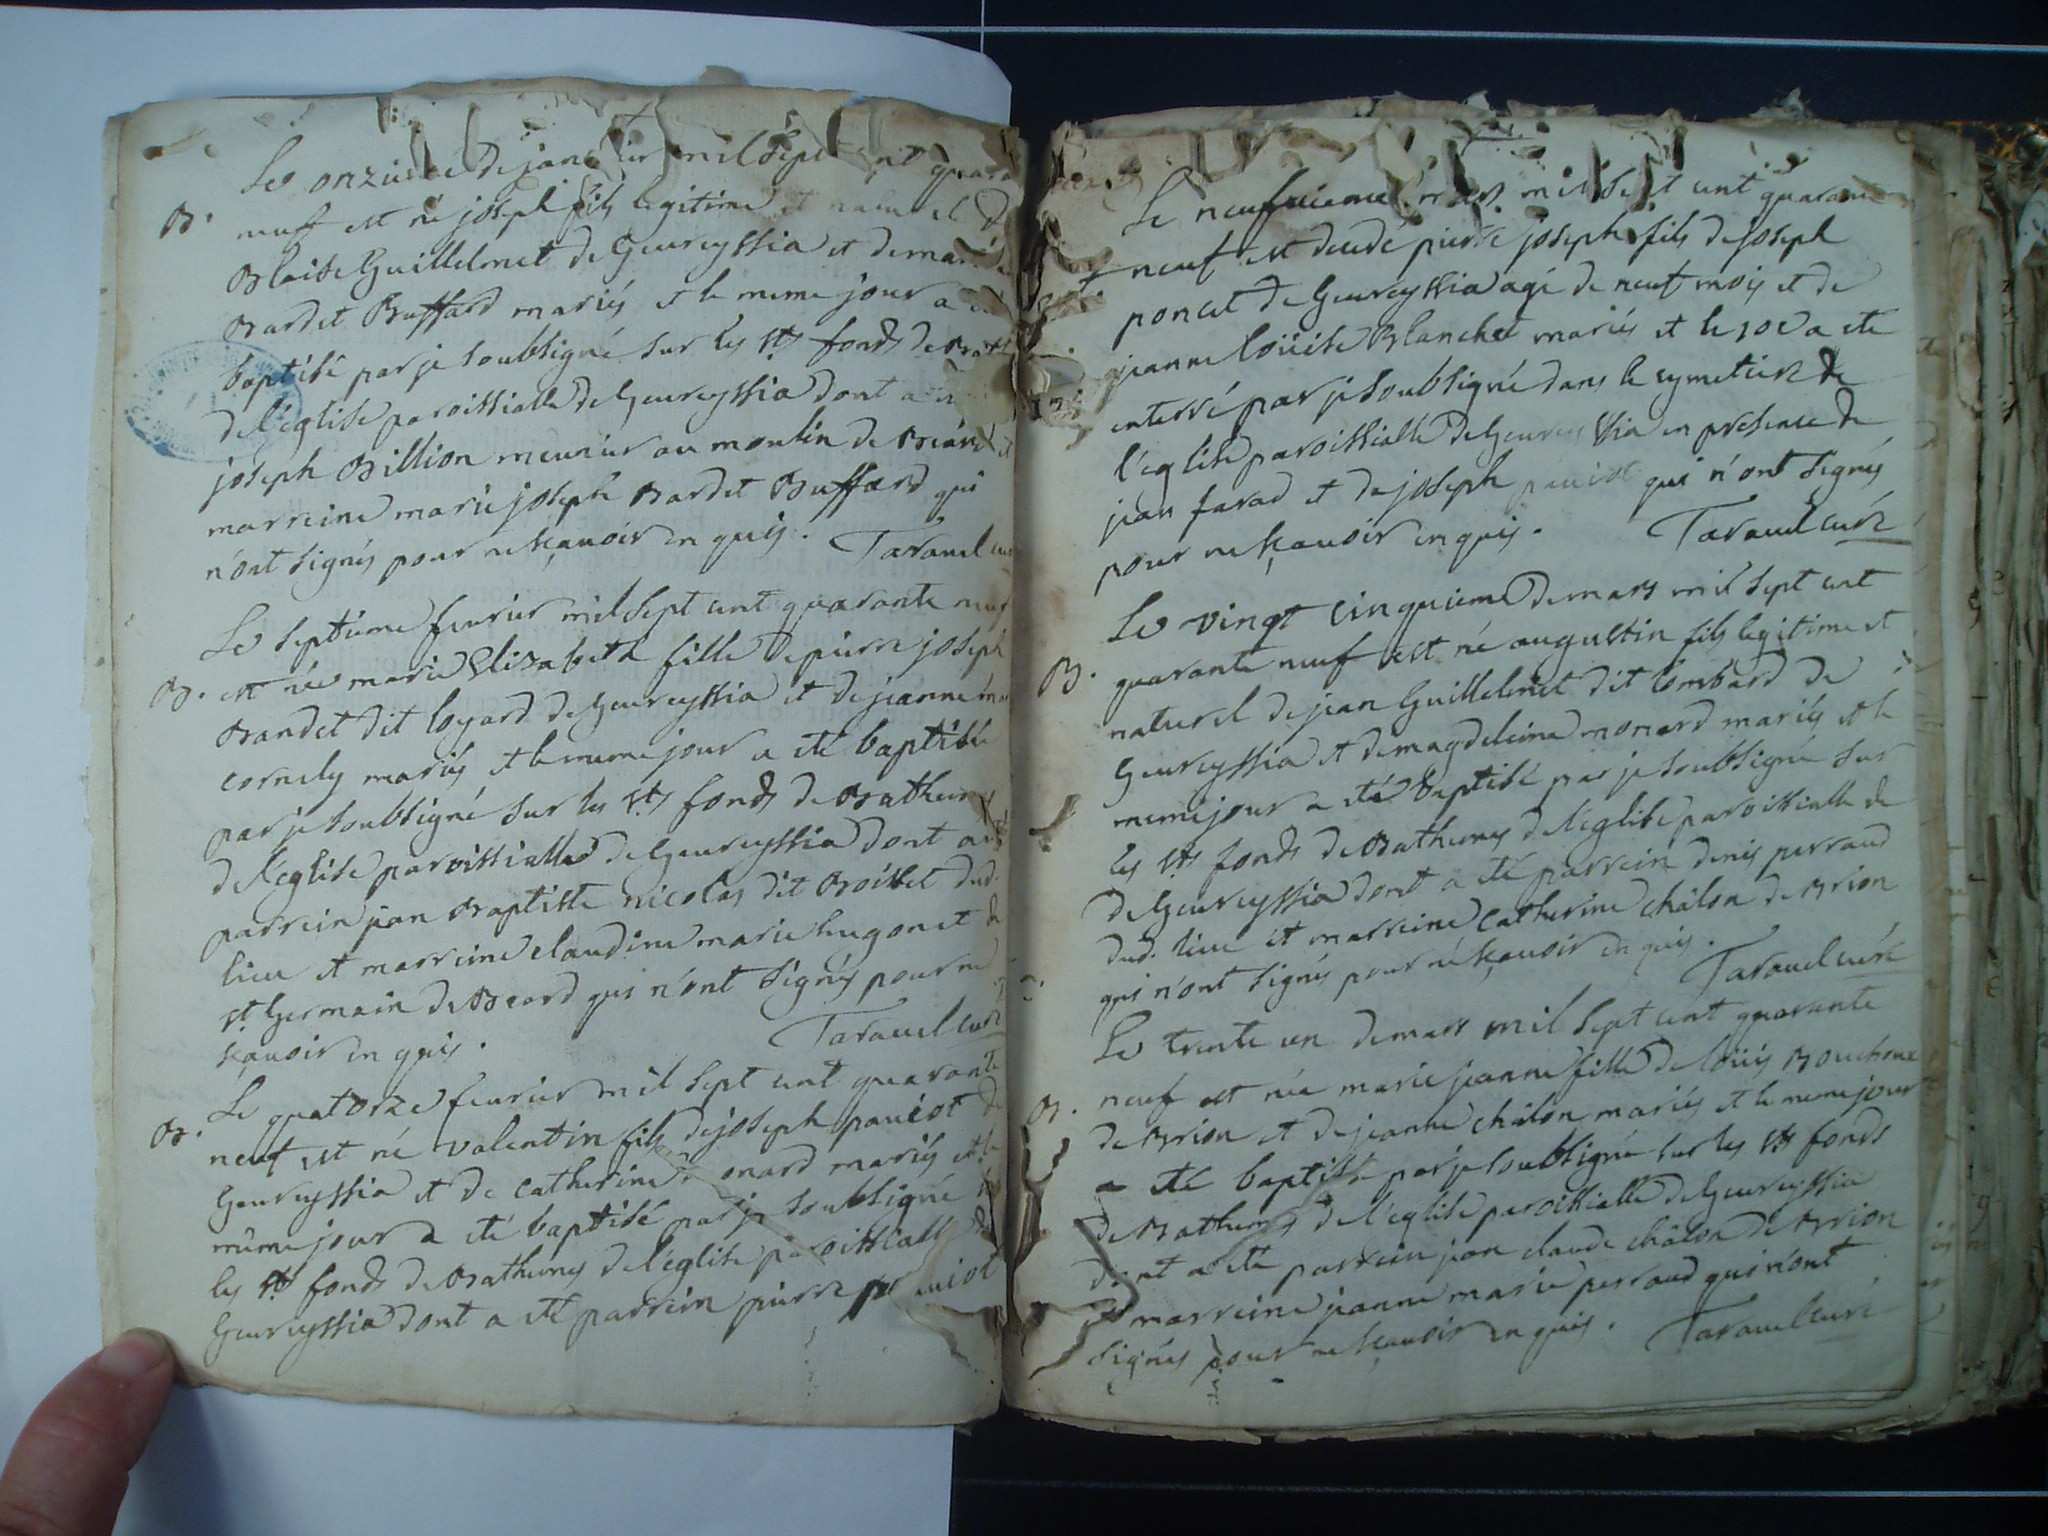 Le onzieme de janvier mil sept cent quara
B. neuf est né joseph fils legitime et naturel de
Blaise Guillelmet de Geureyssia et de marie
Bardet Buffard mariés et le meme jour a
baptisé par je soubsigné sur les sts fonds de
de l'eglise paroissialle de Geureyssia dont a
joseph Billion meunier au moulin de Béard et
marreine marie joseph Bardet Buffard qui
n'ont signés pour ne sçauoir en quis. Tarauel curé
Le septieme feurier mil sept cent quarante neuf
B. est née marie Elizabeth fille de pierre joseph
Bandet dit loyard de Geureyssia et de jeanne
cornely mariés et le meme jour a eté baptisée
par je soubsigné sur les sts fonds de Bathemes
de l'eglise paroissialle de Geureyssia dont a
parrein jean Baptiste nicolas dit Boisset dud.
lieu et marreine claudine marie hugonet de
st Germain de Beard qui n'ont signés pour ne
sçauoir en quis. Tarauel curé
Le quatorze feurier mil sept cent quarante
B. neuf est né valentin fils de joseph pauiot de
Geureyssia et de catherine onard mariés et le
même jour a eté baptisé par je soubsigné
les sts fonds de Bathemes de l'eglise paroissialle de
Geureyssia dont a eté parrein pierre pauiot
Le neufuieme mars mil sept cent quarante
neuf est decedé pierre joseph fils de joseph
poncet de Geureyssia agé de neuf mois et de
jeanne loüise Blanchet mariés et le 10e a eté
enterré par je soubsigné dans le cymetiere de
l'eglise paroissialle de Geureyssia en presence de
jean farad et de joseph pauiot qui n'ont signés
pour ne sçauoir en quis. Tarauel curé
Le vingt cinquieme de mars mil sept cent
B. quarante neuf est né augustin fils legitime et
naturel de jean Guillelmet dit lombard de
Geureyssia et de magdeleine monard mariés et le
meme jour a eté baptisé par je soubsigné sur
les sts fonds de Bathemes de l'eglise paroissialle de
de Geureyssia dont a eté parrein denis perraud
dud. lieu et marreine catherine châlon de Brion
qui n'ont signés pour ne sçauoir en quis. Tarauel curé
Le trente un de mars mil sept cent quarante
B. neuf est née marie jeanne fille de loüis Bouchone
de Brion et de jeanne châlon mariés et le meme jour
a eté baptisée par je soubsigné sur les sts fonds
de Bathemes de l'eglise paroissialle de Geureyssia
dont a eté parrein jean claude châlon de Brion
et marreine jeanne marie perraud qui n'ont
signés pour ne sçauoir en quis. Tarauel curé